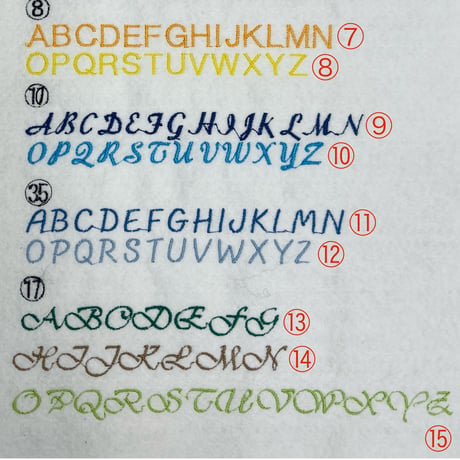 ⑧
ABCDEFGHIJKLMN⑦
OPQRSTUVWXYZ⑧
⑩
ABCDEFGHIJKLMN⑨
OPQRSTUVWXYZ⑩
㉟
ABCDEFGHIJKLMN⑪
OPQRSTUVWXYZ⑫
⑰
ABCDEFG⑬
HIJKLMN⑭
OPQRSTUVWXYZ
⑮